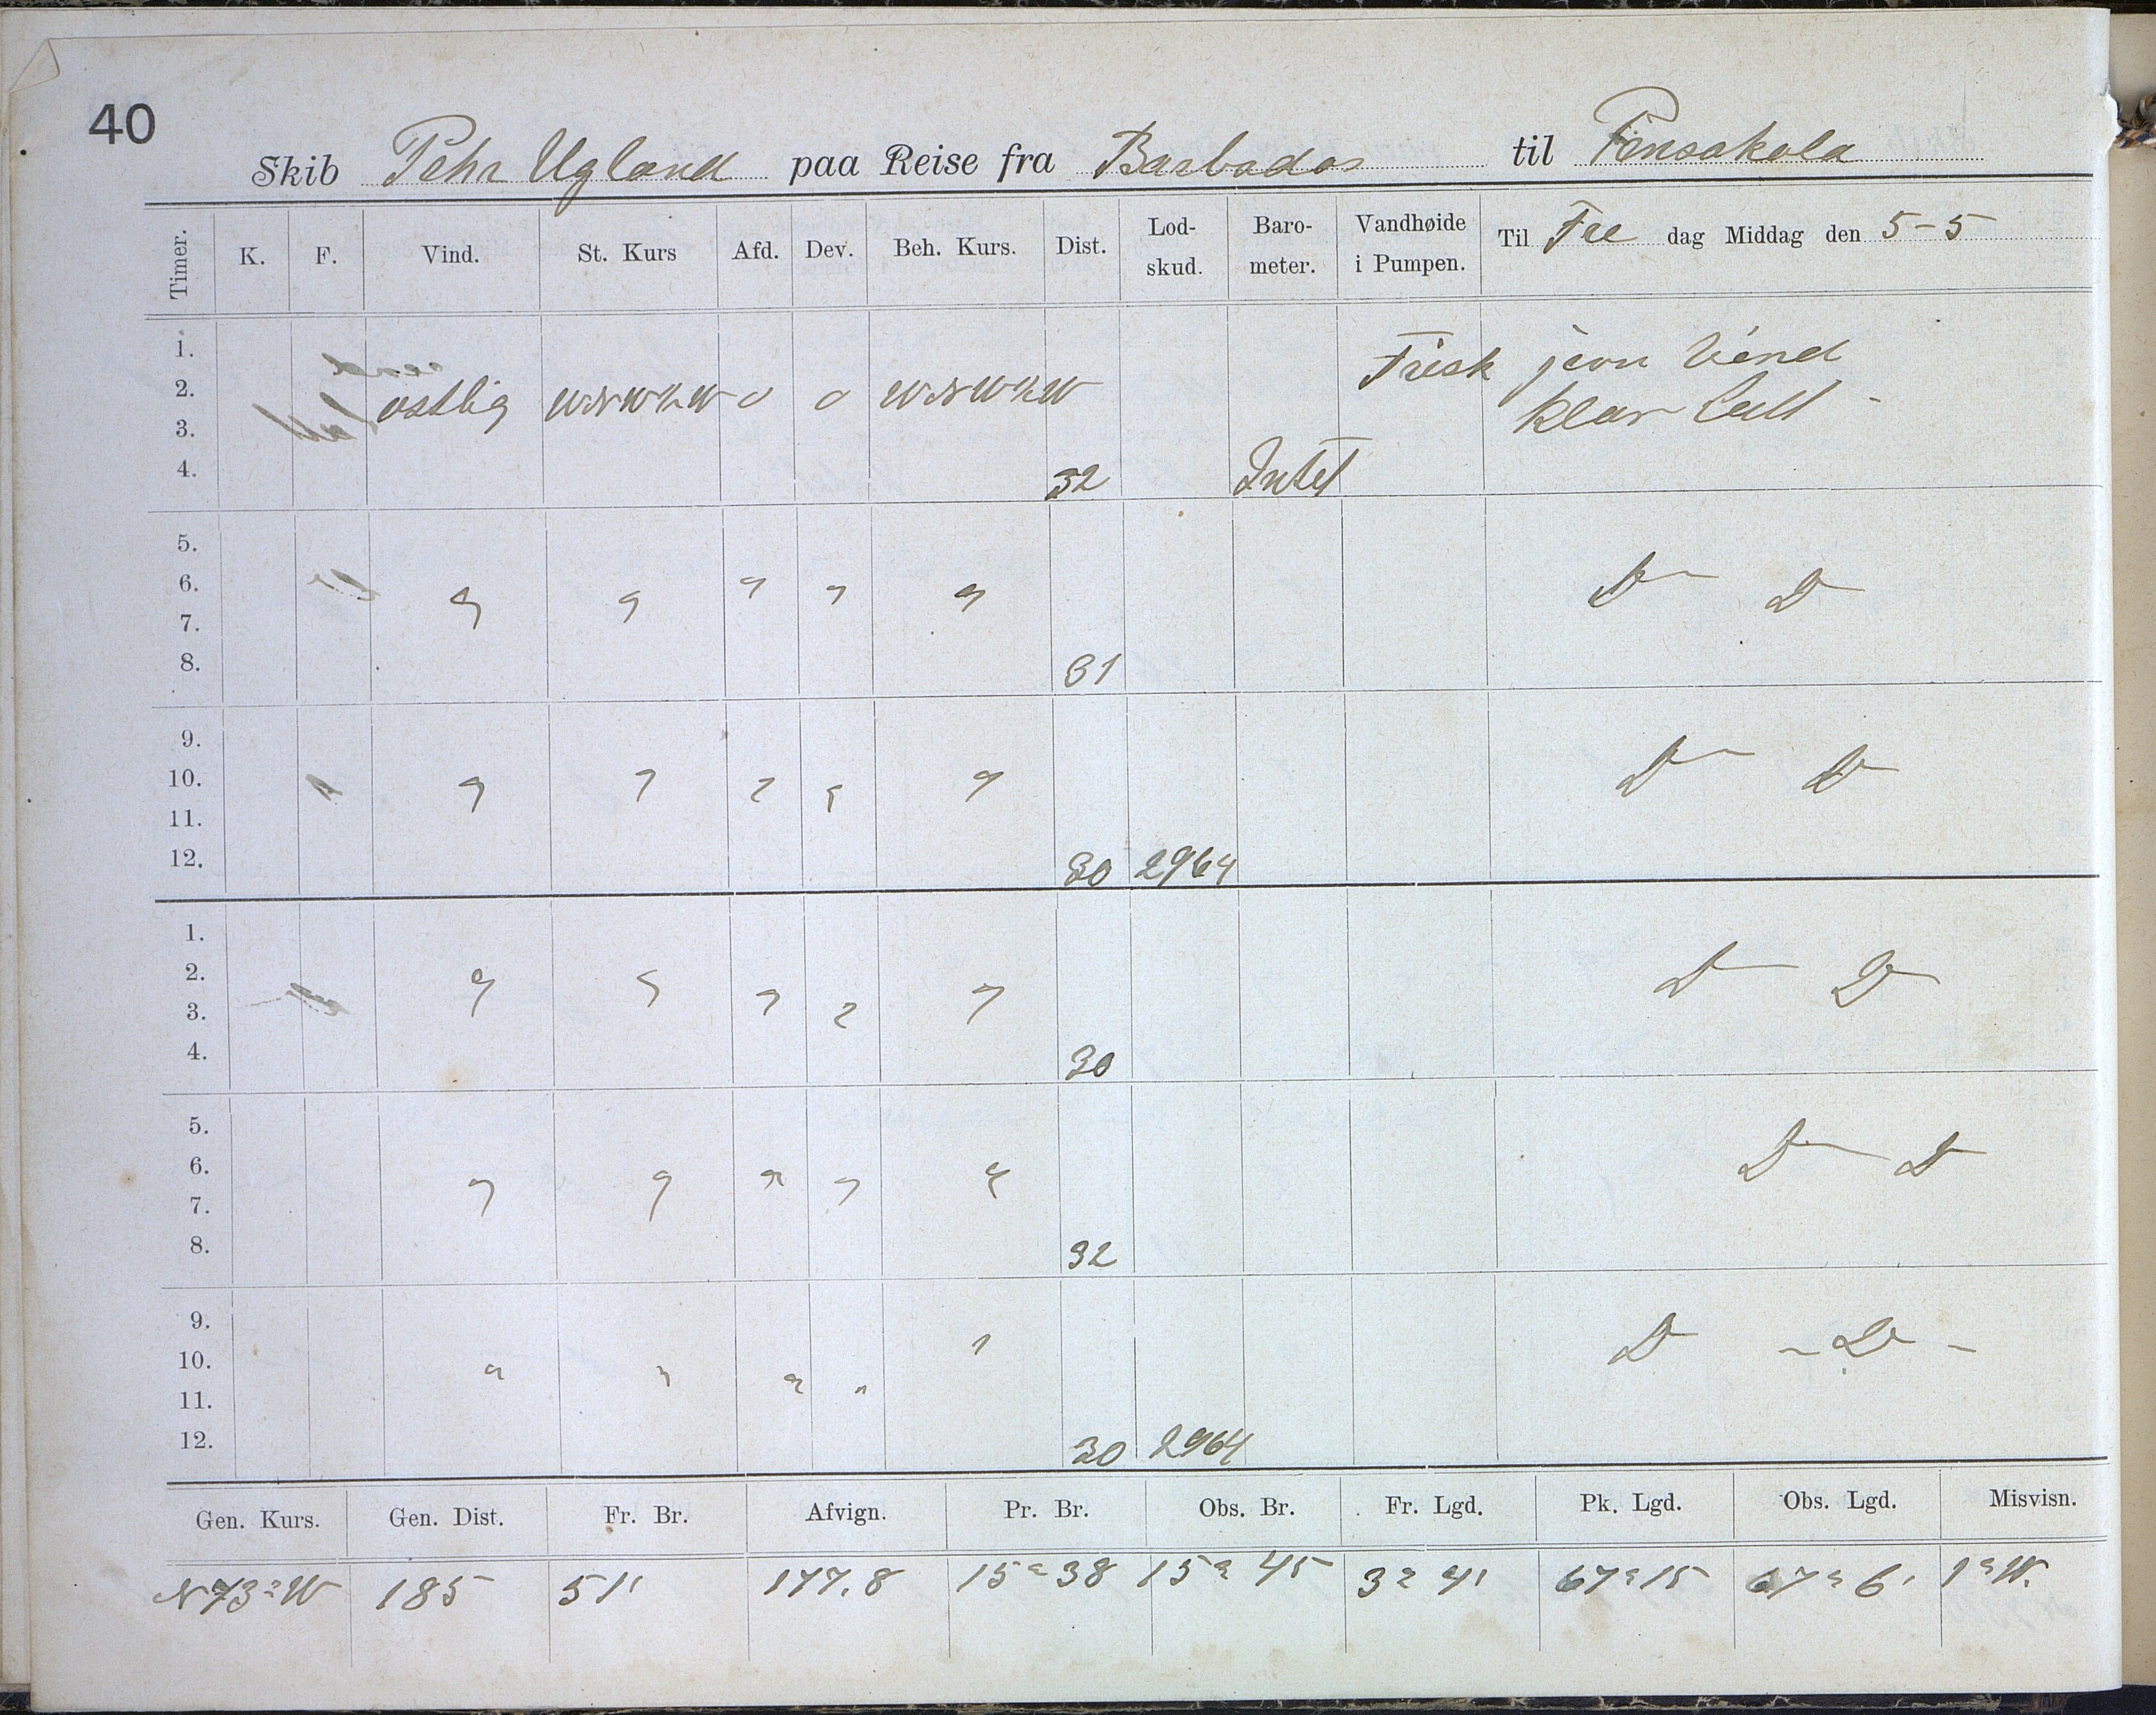 40
Skib Pehr Ugland paa Reise fra Barbados til Pensakola
Timer. K. F. Vind. St. Kurs Afd. Dev. Beh. Kurs. Dist. Lod-skud. Baro-meter. Vandhøide i Pumpen. Til Fre dag Middag den 5-5
1. Frisk jevn Vind
2. ostlig WNW½W 0 0 WNW½W klar Luft -
3.
4. 32 Intet
5.
6. " " " " " D D
7.
8. 31
9.
10. " " " " " D D
11.
12. 30 2964
1.
2. " " " " " D D
3.
4. 30
5.
6. " " " " " D D
7.
8. 32
9.
10. " " " " " D - D -
11.
12. 30 2964
Gen. Kurs. Gen. Dist. Fr. Br. Afvign. Pr. Br. Obs. Br. Fr. Lgd. Pk. Lgd. Obs. Lgd. Misvisn.
N73°W 185 51' 177.8 15°38 15°45 3°4' 67°15 67°6' 1°W.